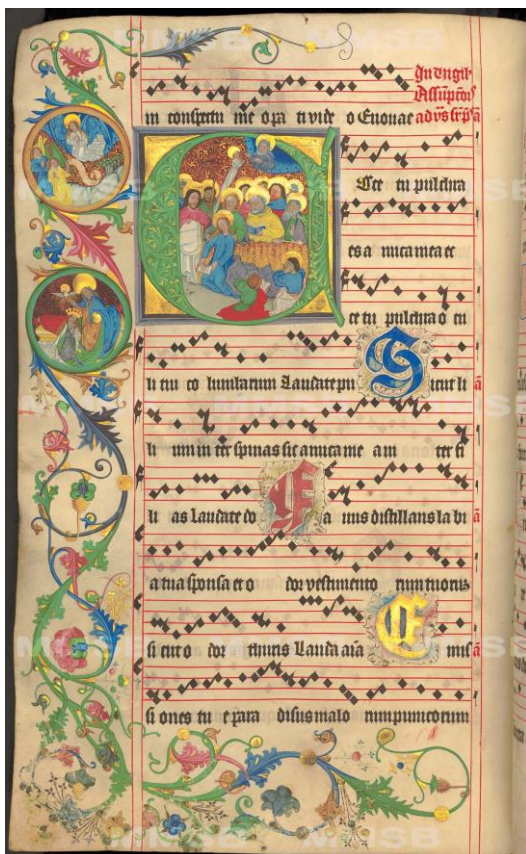 in conspectu me o pa ti vide o Euouae
In vigil
Assūpcōis
Ecce tu pulchra
es a mica mea ec
ce tu pulchra o cu
li tui co lumbarum Laudate pu Sicut li ā
li um in ter spinas sic amica me a in ter fi
li as Laudate do Fa uus distillans la bi ā
a tua sponsa et o dor vestimento rum tuorum
si cut o dor thuris Lauda aīa Emis ā
si ones tu e para disus malo rum punicorum